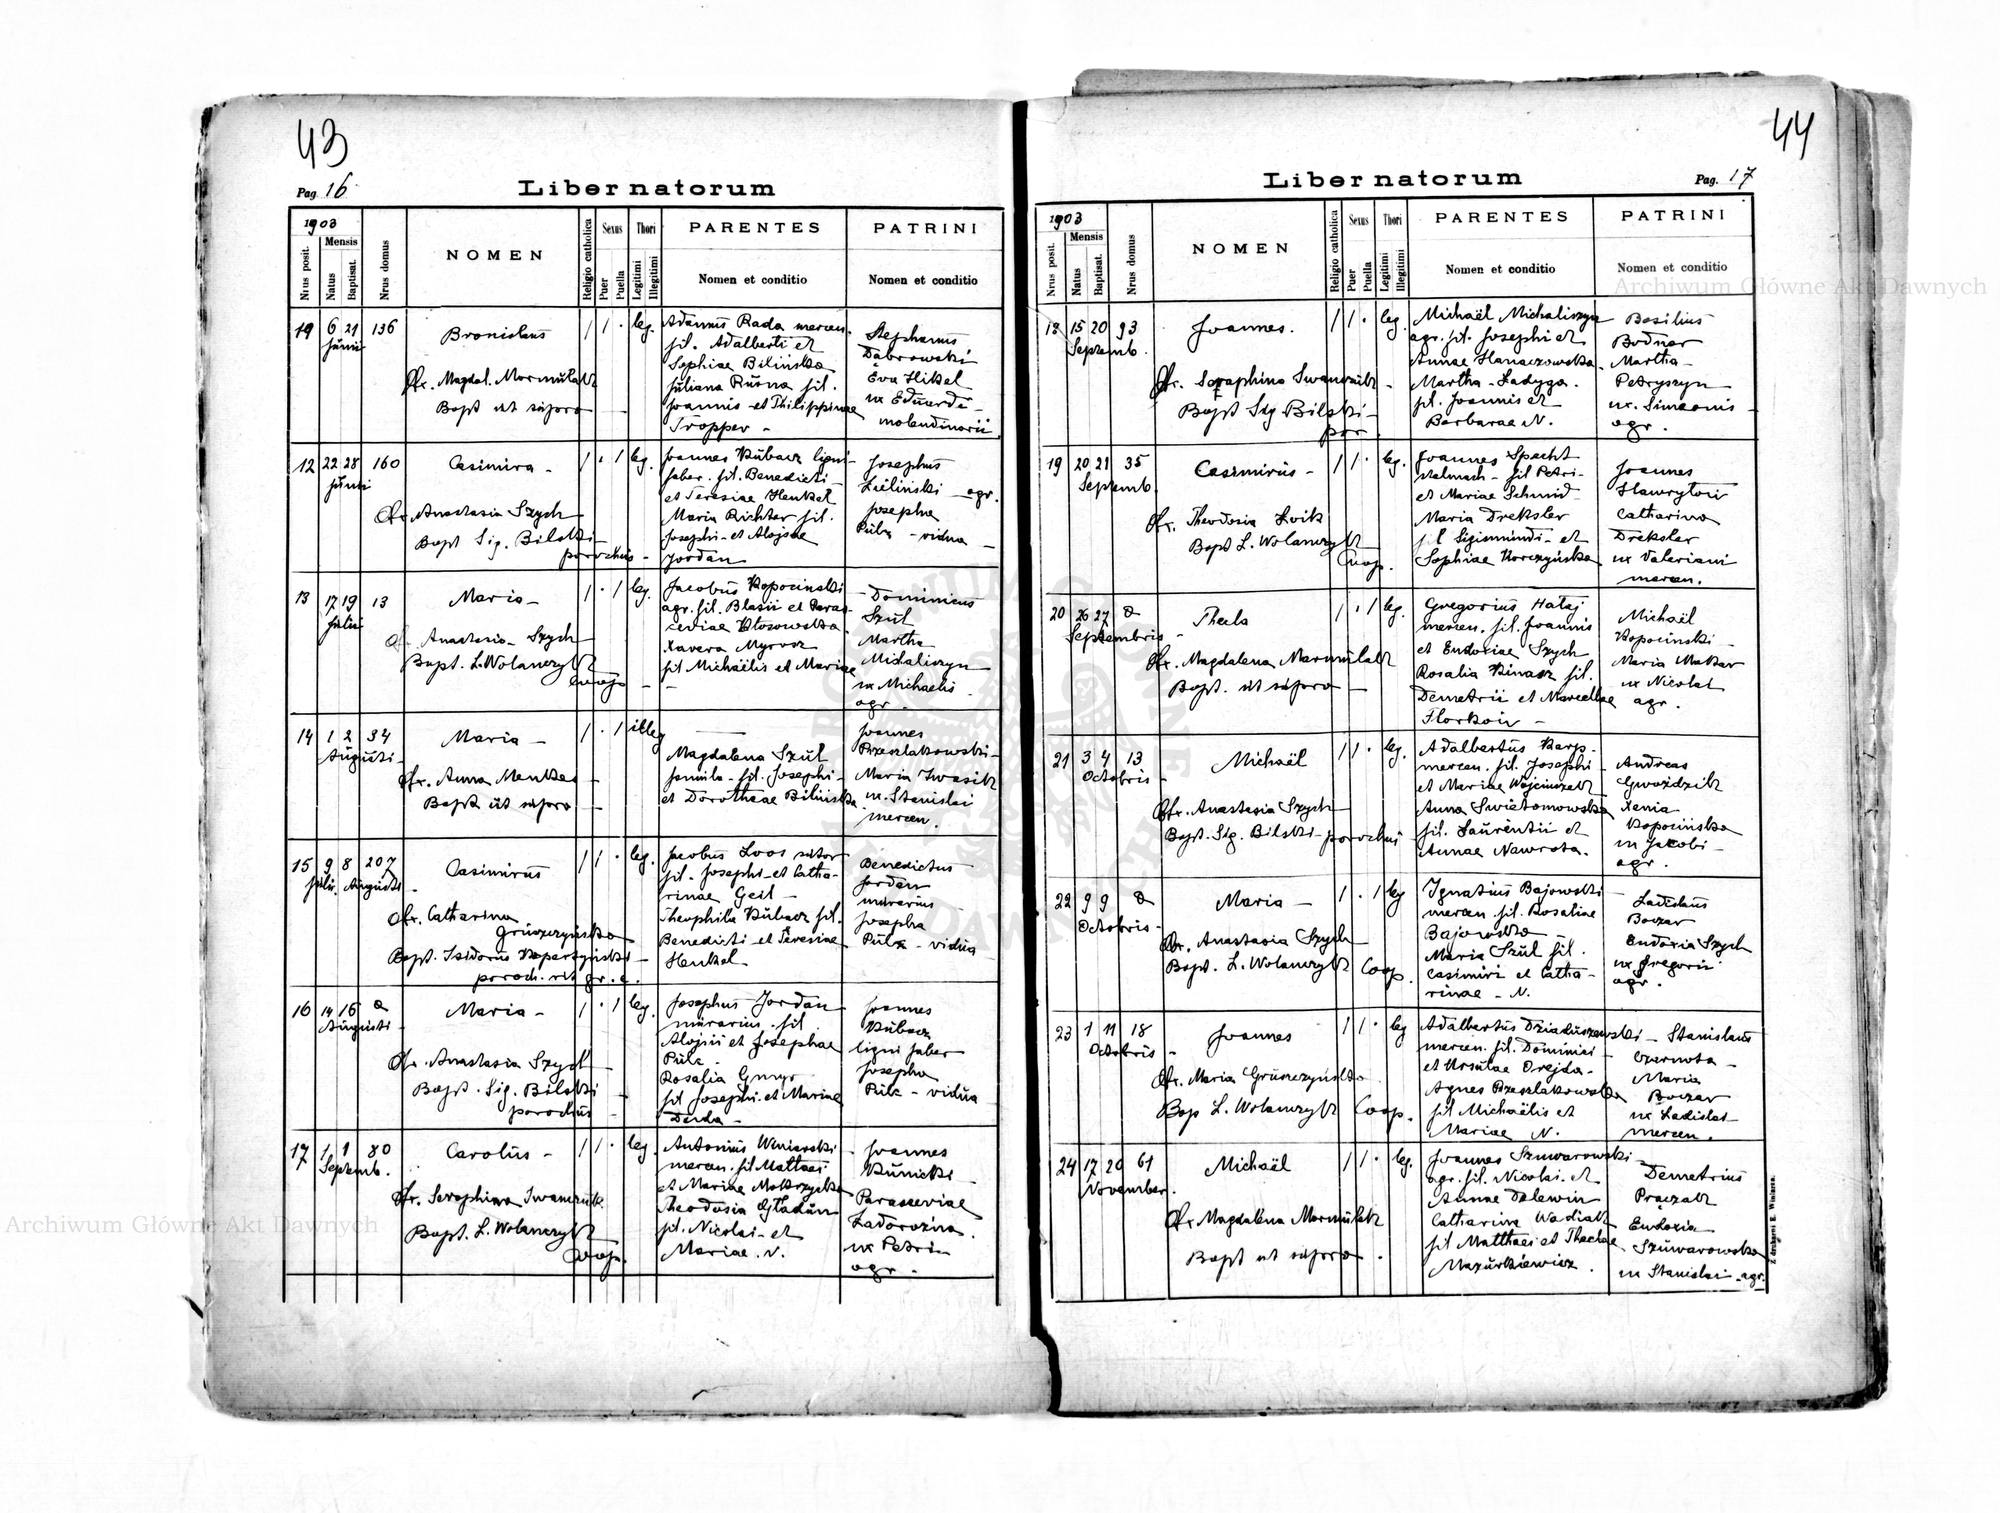 43
Pag. 16
Liber natorum
1903
Nrus posit.
Mensis
Natus
Baptisat.
Nrus domus
NOMEN
Religio catholica
Sexus
Puer
Puella
Thori
Legitimi
Illegitimi
PARENTES
Nomen et conditio
PATRINI
Nomen et conditio
6 21 136
Junii
Bronislaus
Obr. Magdal. Marmulak
Bapt ut supra
leg.
Adamus Rada mercen.
fil. Adalberti et
Sophiae Bilińska
Juliana Rusna fil.
Joannis et Philippinae
Tropper -
Stephanus
Dąbrowski
Eva Hikel
ux Eduardi -
molendinarii
12 22 28 160
Junii
Casimira -
Obr. Anastasia Szych
Bapt Sig. Bilski -
parochus -
leg.
Joannes Kubacz ligni-
faber. fil. Benedicti -
et Teresiae Henkel
Maria Richter fil.
Josephi - et Aloisae
Jordan
Josephus
Zieliński agr.
Josepha
Pulz - vidua -
13 17 19 13
Julii
Maria -
Obr. Anastasia - Szych
Bapt. L. Wolanczyk
Coop -
leg.
Jacobus Kopocinski
agr. fil. Blasii et Paras-
ceviae Kłosowska
Xavera Myroz
fil Michaëlis et Mariae
- Dominicus
Szul
Martha
Michaliszyn
ux Michaelis -
agr.
14 1 2 34
Augusti -
Maria -
Obr. Anna Menkes -
Bapt ut supra -
illeg
Magdalena Szul
famula - fil. Josephi -
et Dorotheae Bilińska
Joannes
Przeszlakowski -
Maria Iwasik
ux. Stanislai
mercen.
15 9 8 207
Julii. Augusti -
Casimirus
Obr. Catharina
Gruszczyńska
Bapt. Isidorus Kopertyński -
paroch. rit gr. c.
leg.
Jacobus Loos sutor
fil. Josephi - et Catha-
rinae Geil -
Theophila Kubacz fil.
Benedicti - et Teresiae
Henkel
Benedictus
Jordan
murarius -
Josepha
Pulz - vidua
16 14 16
Augusti -
Maria -
Obr. Anastasia Szych -
Bapt. Sig. Bilski -
parochus -
leg.
Josephus Jordan
murarius - fil
Alojsii et Josephae
Pulz -
Rosalia Gmyr
fil Josephi - et Mariae
Derda -
Joannes
Kubacz
ligni faber
Josepha
Pulz - vidua
17 1 1 80
Septemb.
Carolus -
Obr. Seraphina Iwanczuk
Bapt. L. Wolanczyk
Coop.
leg.
Antonius Winiarski
mercen. fil Matthaei
et Mariae Mokrzycka
Theodosia Gładun
fil. Nicolai - et
Mariae N.
Joannes
Kunicki
Parasceviae
Ładorożna
ux Petri -
agr -
44
Pag. 17
Liber natorum
1903
Nrus posit.
Mensis
Natus
Baptisat.
Nrus domus
NOMEN
Religio catholica
Sexus
Puer
Puella
Thori
Legitimi
Illegitimi
PARENTES
Nomen et conditio
PATRINI
Nomen et conditio
18 15 20 93
Septemb.
Joannes.
Obr. Seraphina Iwanczuk -
Bapt Sig Bilski -
par.
leg.
Michaël Michaliszyn
agr. fil. Josephi et
Annae Hanaczowska
Martha - Ładyga.
fil. Joannis et
Barbarae N.
Basilius
Bodnar
Martha -
Petryszyn
ux. Simeonis -
agr.
19 20 21 35
Septemb.
Casimirus -
Obr. Theodosia Kvik
Bapt L. Wolanczyk
Coop.
leg.
Joannes Specht
stelmach - fil Petri -
et Mariae Schmid -
Maria Dreksler
fil Sigismundi - et
Sophiae Korczyńska
Joannes
Hawryłow
Catharina
Dreksler
ux Valeriani
mercen.
20 26 27
Septembris -
Thecla
Obr. Magdalena Marmulak
Bapt. ut supra -
leg.
Gregorius Hałaj
mercen. fil. Joannis
et Eudoxiae Szych
Rosalia Kinasz fil.
Demetrii et Marcellae
Florkow -
Michaël
Kopocinski -
Maria Makar
ux Nicolai
agr.
21 3 4 13
Octobris -
Michaël
Obr. Anastasia Szych
Bapt. Sig. Bilski - parochus -
leg.
Adalbertus Karp -
mercen. fil. Josephi -
et Mariae Wojciszek
Anna Swiatomowska
fil. Laurentii et
Annae Nawrota.
Andreas
Gwoździk
Xenia
Kopocińska
ux Jacobi -
agr.
22 9 9
Octobris -
Maria -
Obr. Anastasia Szych
Bapt. L. Wolanczyk Coop.
leg
Ignatius Bajowski -
mercen. fil. Rosaliae
Bajowska -
Maria Szul fil.
Casimiri et Catha-
rinae - N.
Ladislaus
Boczar
Eudoxia Szych
ux Gregorii -
agr.
23 1 11 18
Octobris -
Joannes
Obr. Maria Gruszczyńska
Bap L. Wolanczyk Coop.
leg
Adalbertus Dziaduszewski -
mercen. fil. Dominici -
et Ursulae Orejda -
Agnes Przeszlakowska
fil Michaëlis et
Mariae N.
Stanislaus
Czarnota -
Maria
Boczar
ux Ladislai -
mercen.
24 17 20 61
November.
Michaël
Obr. Magdalena Marmulak
Bapt ut supra.
leg.
Joannes Szuwarowski -
agr. fil. Nicolai - et
Annae Dalewin
Catharina Wadiak
fil Matthaei et Theclae
Mazurkiewicz.
Demetrius
Praczak
Eudoxia
Szuwarowska
ux Stanislai - agr.
Z drukarni E. Winiarza.
Archiwum Główne Akt Dawnych
Archiwum Główne Akt Dawnych